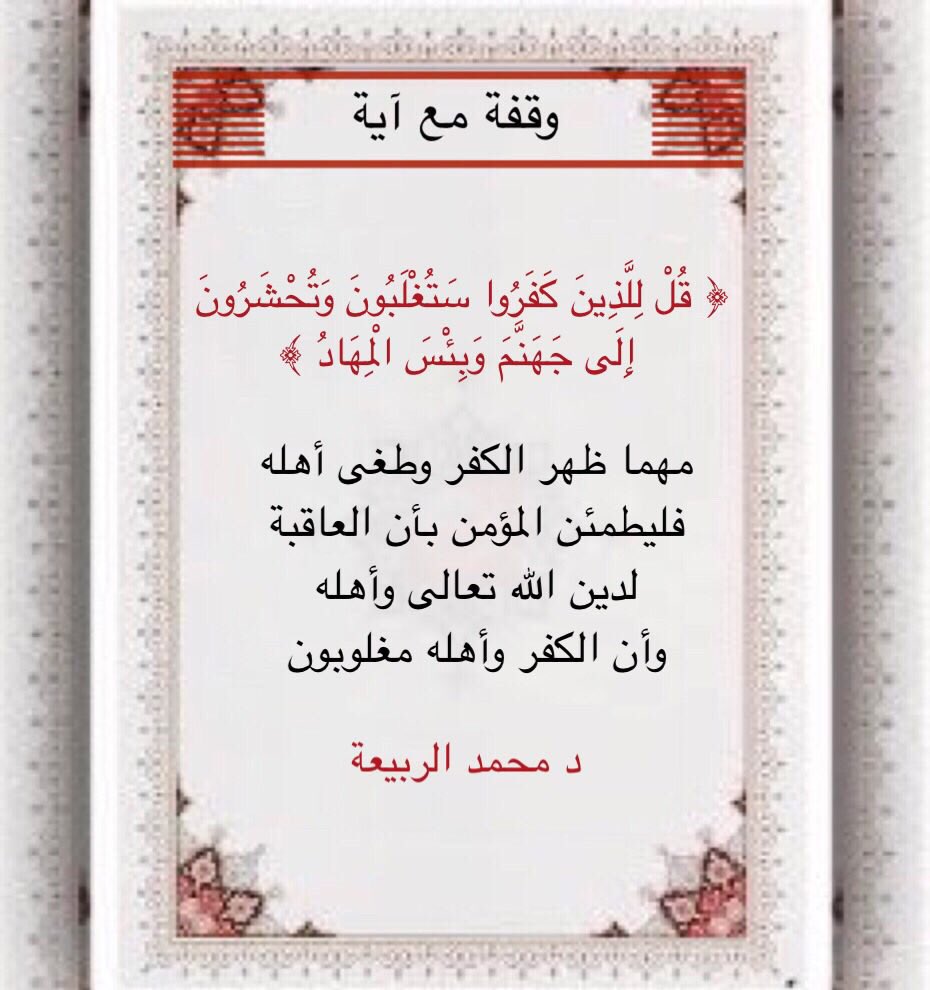 وقفة مع آية
﴿ قُلْ لِلَّذِينَ كَفَرُوا سَتُغْلَبُونَ وَتُحْشَرُونَ
إِلَى جَهَنَّمَ وَبِئْسَ الْمِهَادُ ﴾
مهما ظهر الكفر وطغى أهله
فليطمئن المؤمن بأن العاقبة
لدين الله تعالى وأهله
وأن الكفر وأهله مغلوبون
د محمد الربيعة